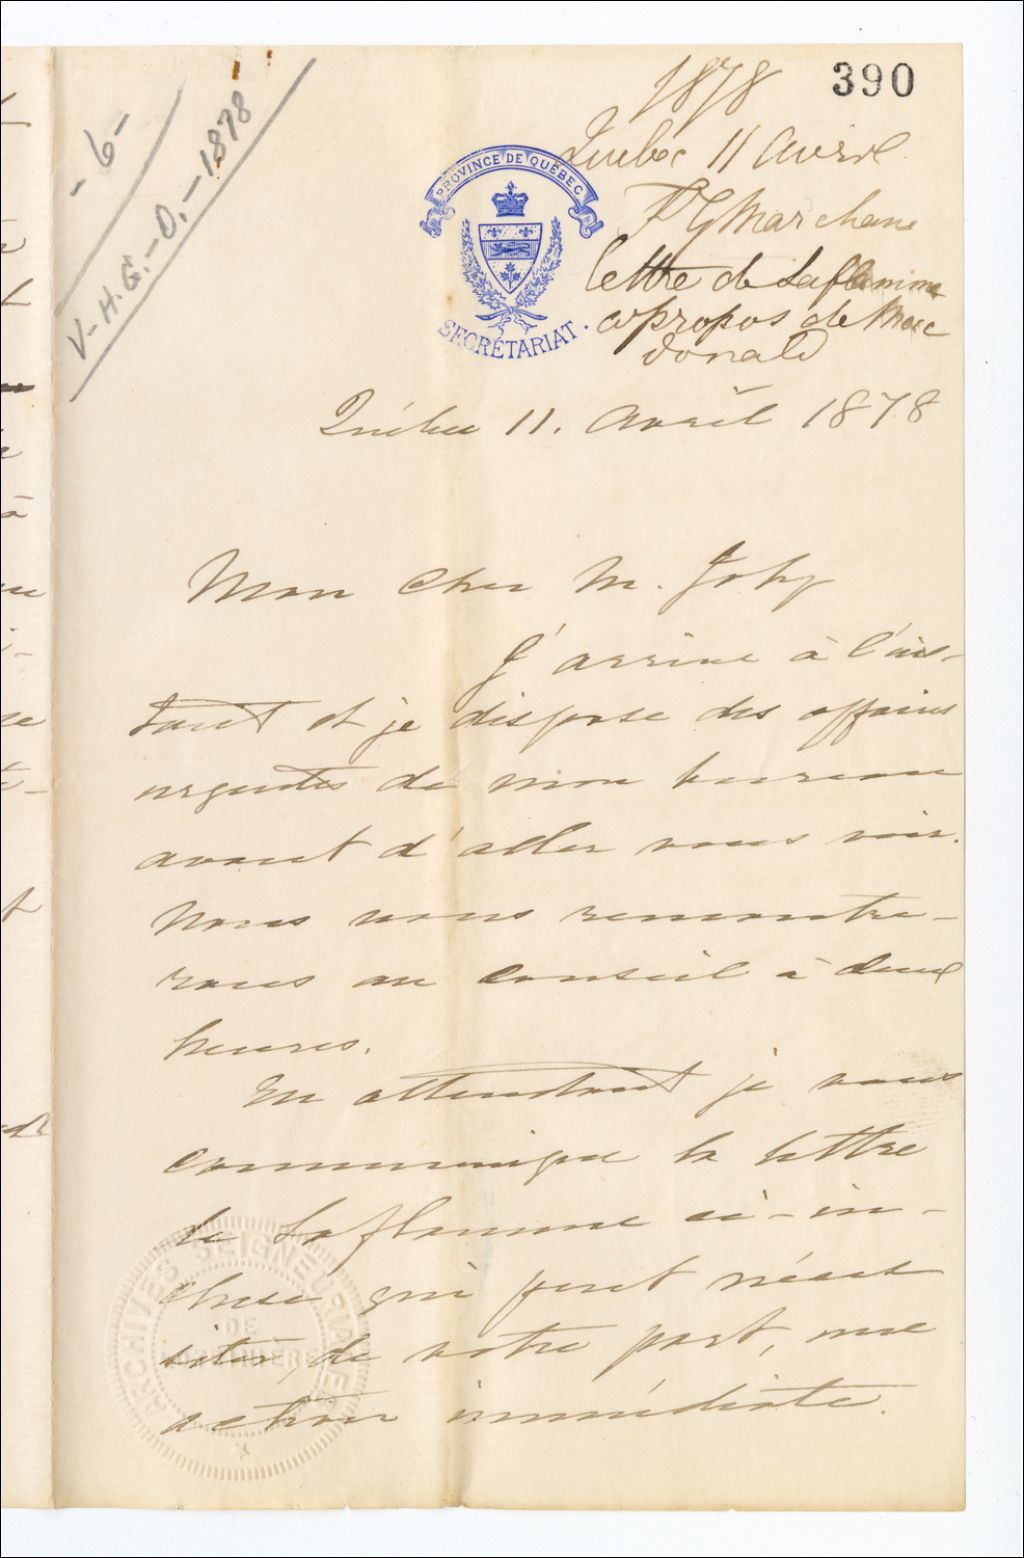 390
1878
- 6 -
V-H.G.-D.-1878
Québec 11 Avril
F G Marchand
lettre de Laflamme
apropos de Mac
donald
PROVINCE DE QUÉBEC
SECRÉTARIAT.
Québec 11. Avril 1878
Mon Cher M. Joly
J'arrive à l'ins-
tant et je dispose des affaires
urgentes de mon bureau
avant d'aller vous voir.
Nous nous rencontre-
rons au conseil à deux
heures.
En attendant je vous
communique la lettre
de Laflamme ci-in-
cluse qui peut nécessi
siter, de votre part, une
action immédiate.
ARCHIVES SEIGNEURIALES
DE
LOTBINIÈRE